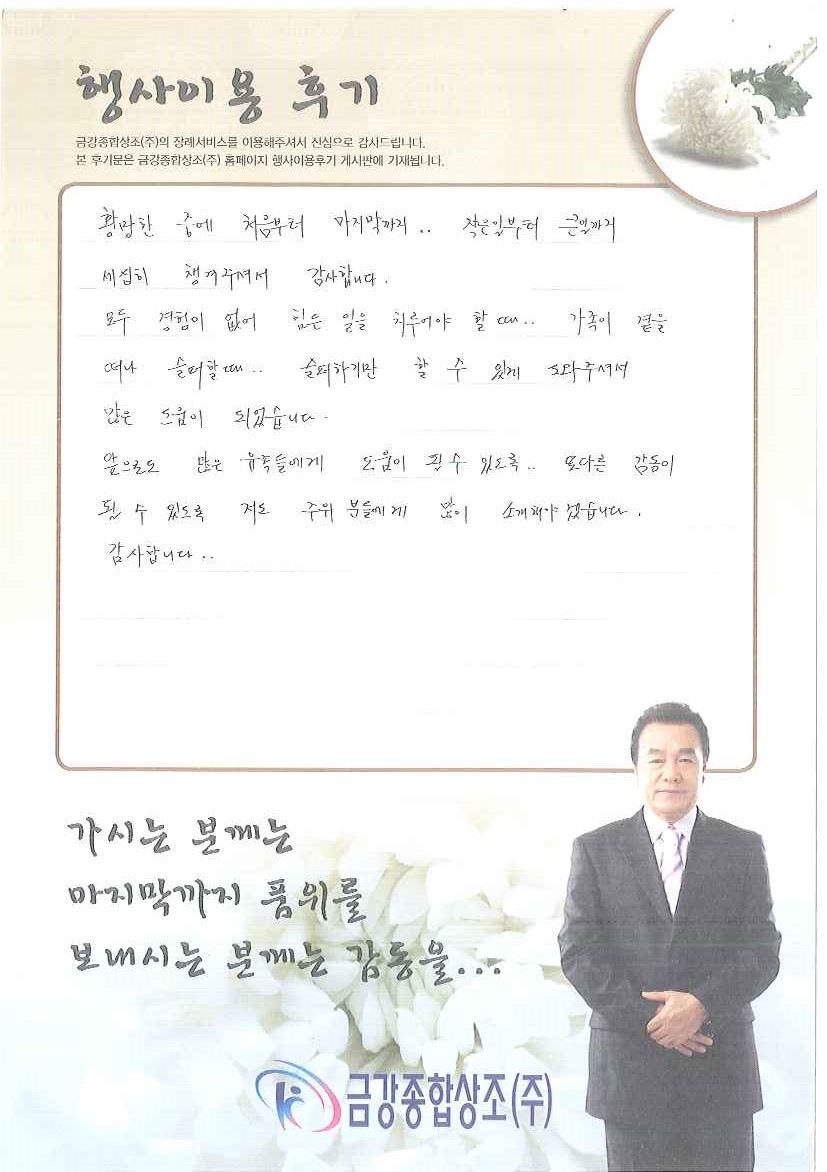 행사이용 후기
금강종합상조(주)의 장례서비스를 이용해주셔서 진심으로 감사드립니다.
본 후기문은 금강종합상조(주) 홈페이지 행사이용후기 게시판에 기재됩니다.
황망한 중에 처음부터 마지막까지.. 작은일부터 큰일까지
세심히 챙겨주셔서 감사합니다.
모두 경험이 없어 힘든 일을 치루어야 할 때.. 가족이 곁을
떠나 슬퍼할때.. 슬퍼하기만 할 수 있게 도와주셔서
많은 도움이 되었습니다.
앞으로도 많은 유족들에게 도움이 될 수 있도록.. 또다른 감동이
될 수 있도록 저도 주위 분들에게 많이 소개해야 겠습니다.
감사합니다..
가시는 분께는
마지막까지 품위를
보내시는 분께는 감동을...
금강종합상조(주)